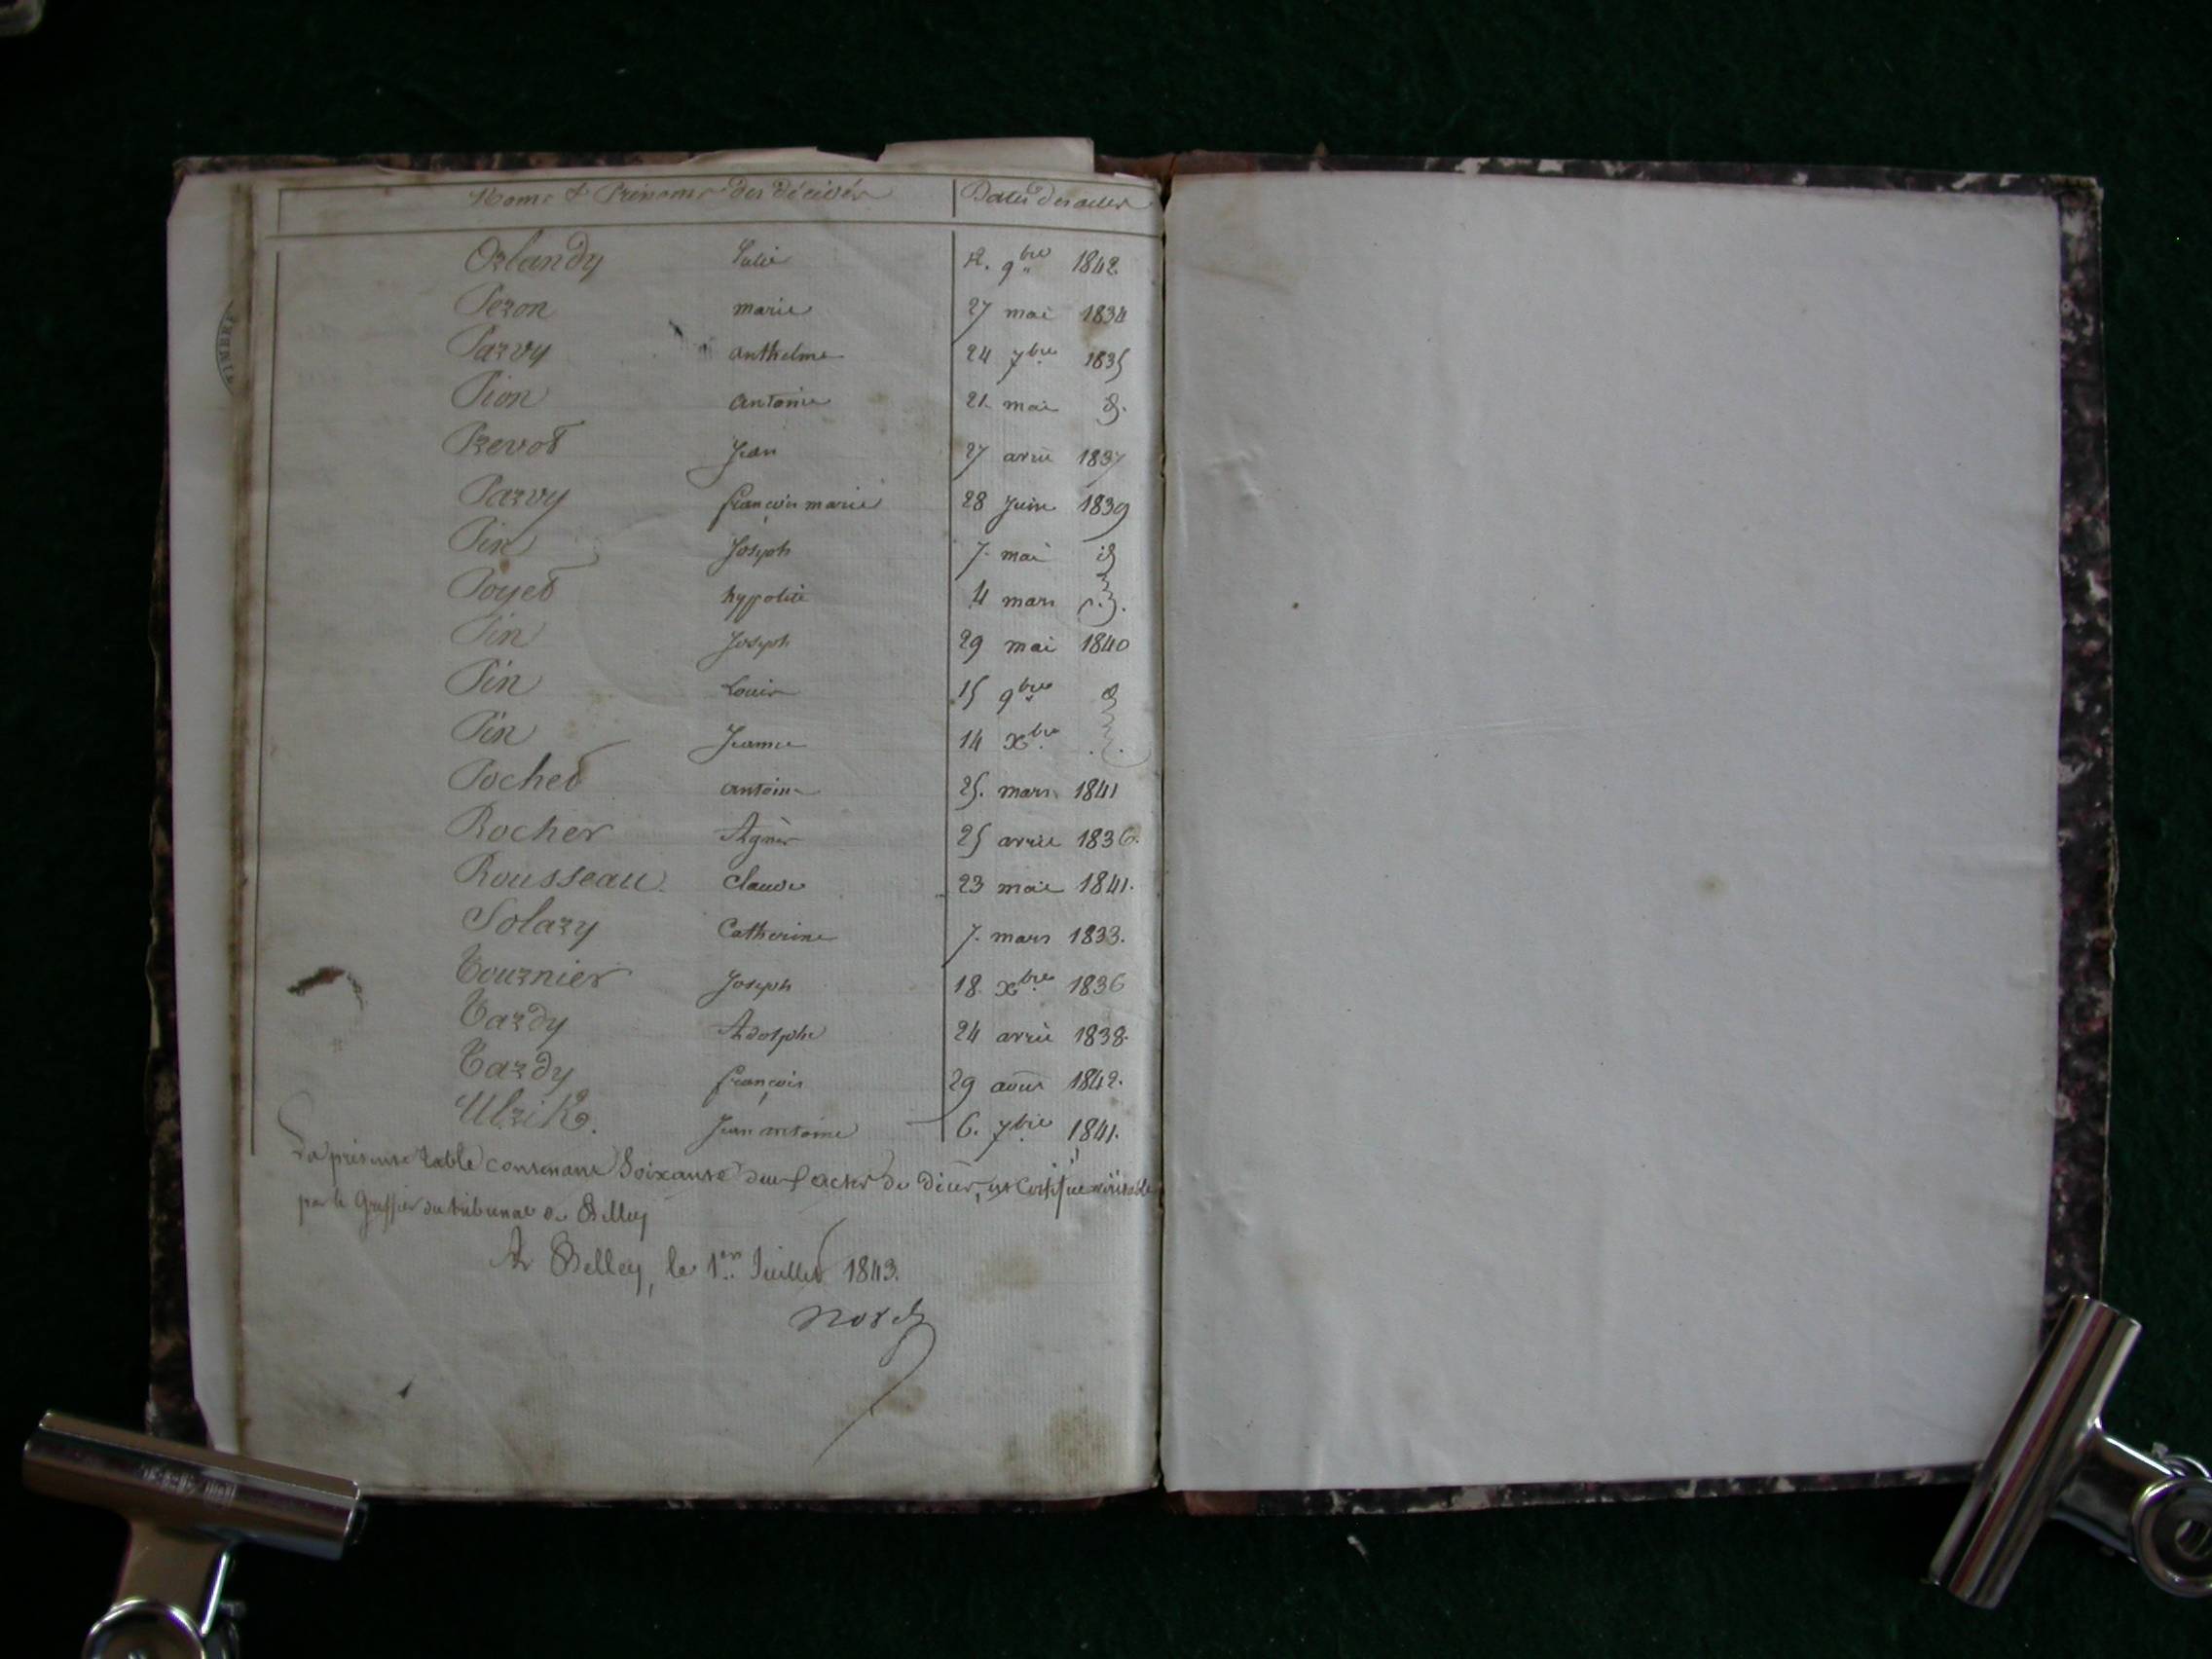 Noms & Prénoms des décédés Dates des actes
Orlandy Julie 12. 9bre 1842.
Peron marie 27 mai 1834
Parvy anthelme 24 7bre 1835
Pion antoine 21. mai d.
Prevot Jean 27 avril 1837
Parvy françois marie 28 Juin 1839
Pin Joseph 7. mai id
Poyet hyppolite 4 mars
Pin Joseph 29 mai 1840
Pin Louis 15 9bre d
Pin Jeanne 14 Xbre
Pochet antoine 25. mars 1841
Rocher Agnès 25 avril 1836.
Rousseau. Claude 23 mai 1841.
Solary Catherine 7. mars 1833.
Tournier Joseph 18. Xbre 1836
Tardy Adolphe 24 avril 1838.
Tardy françois 29 août 1842.
Ulrik. Jean antoine 6. 7bre 1841.
La présente table contenant Soixante deux actes de décès, est certifiée véritable
par le Greffier du tribunal de Belley
A Belley, le 1er Juillet 1843.
TIMBRE